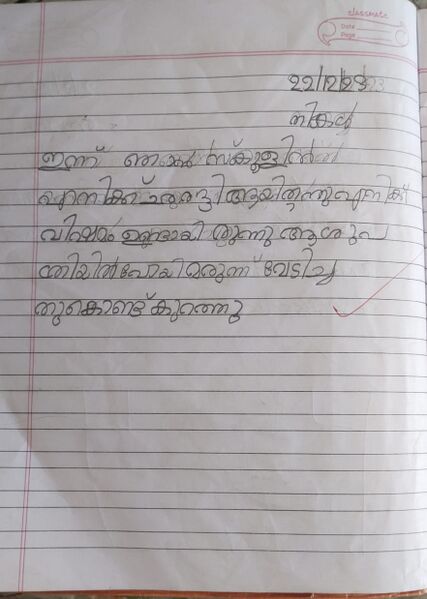 classmate
Date
Page
22/12/23
ഇന്ന് ഞാൻ സ്കൂളിൽ
എനിക്ക് ആയിരുന്നു എനിക്ക്
വിഷമം ഉണ്ടായിരുന്നു ആശുപ
ത്രിയിൽ പോയി മരുന്ന് വേടിച്ച
തുകൊണ്ട് കുറഞ്ഞു